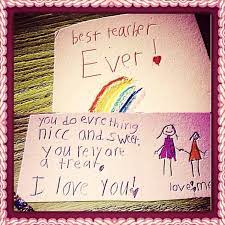 best teacher
Ever!
you do evrething
nice and sweet,
you rely are
a treat.
I love You!
love, me